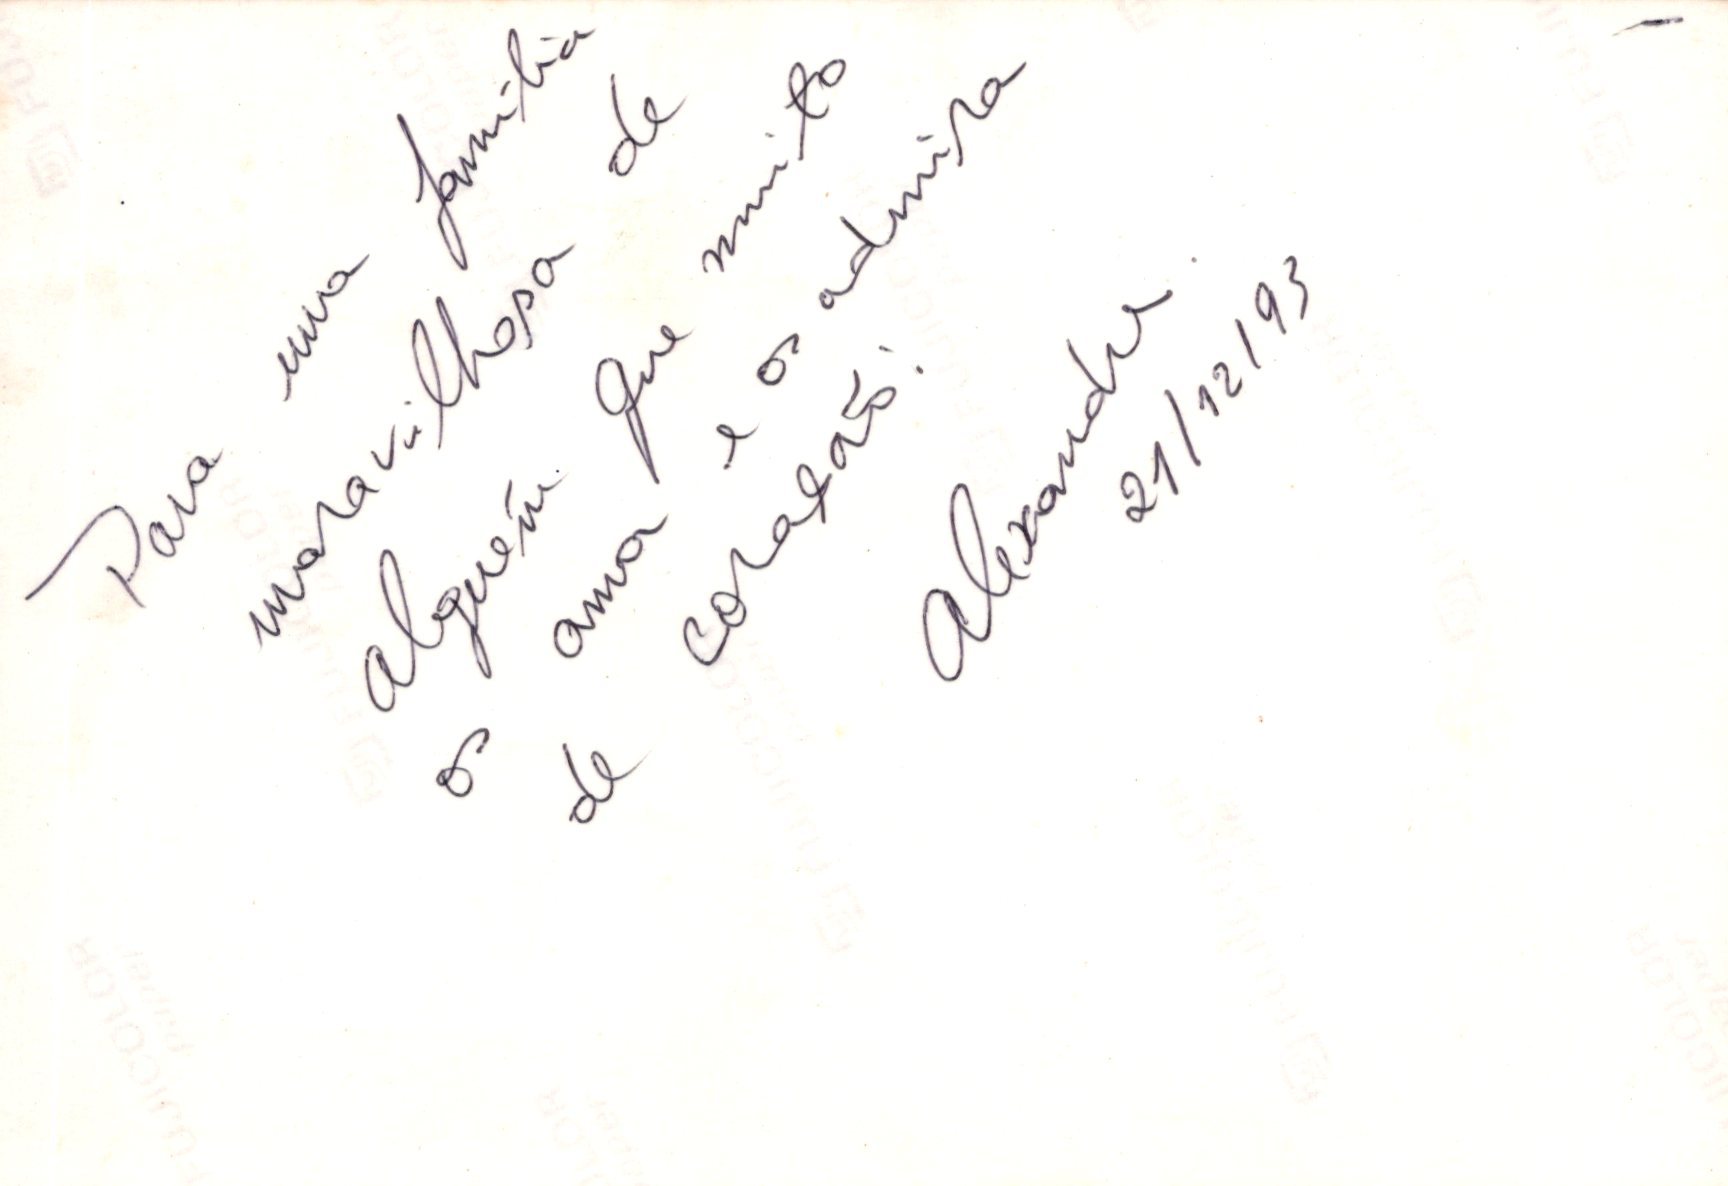 Para uma familia
maravilhosa de
alguém que muito
os ama e os admira
de coração.
Alexandre
21/12/93
FUJICOLOR